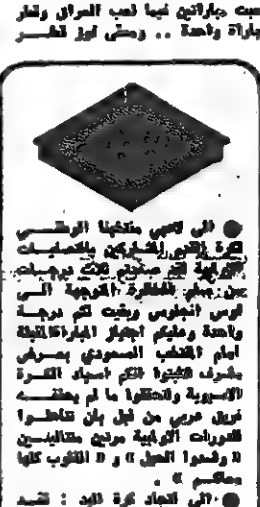 لعبت مباراتين فيما لعب العراق وقطر
مباراة واحدة .. وعلى فوز قطر
● الى لاعبي منتخبنا الوطني
لكرة القدم المشاركين بالتصفيات
الاولمبية لقد صعدتم ثلاث درجات
من سلم الطائرة المتوجهة الى
لوس انجلوس وبقيت لكم درجة
واحدة وعليكم اجتياز المباراة المقبلة
امام المنتخب السعودي
بشرف لتثبتوا انكم اسياد الكرة
الاسيوية ولتحققوا ما لم يحققه
فريق عربي من قبل بأن تتأهلوا
للدورات الاولمبية مرتين متتاليتين
« وشدوا الحيل » و « القلوب كلها
معاكم » .
● الى اتحاد كرة اليد :